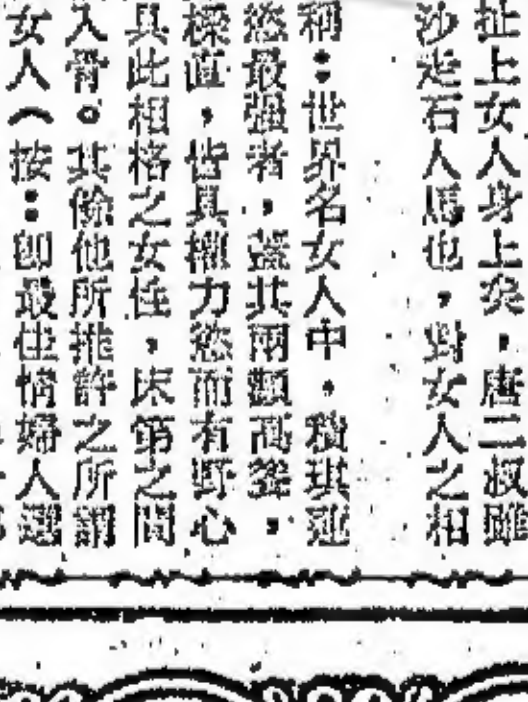 扯上女人身上來，唐二叔雖
沙走石人馬也，對女人之相
稱：世界名女人中，積琪連
慾最強者，蓋其兩顴高聳，
樑直，皆具權力慾而有野心
具此相格之女性，床笫之間
入骨。其餘他所推許之所謂
女人（按：即最佳情婦人選